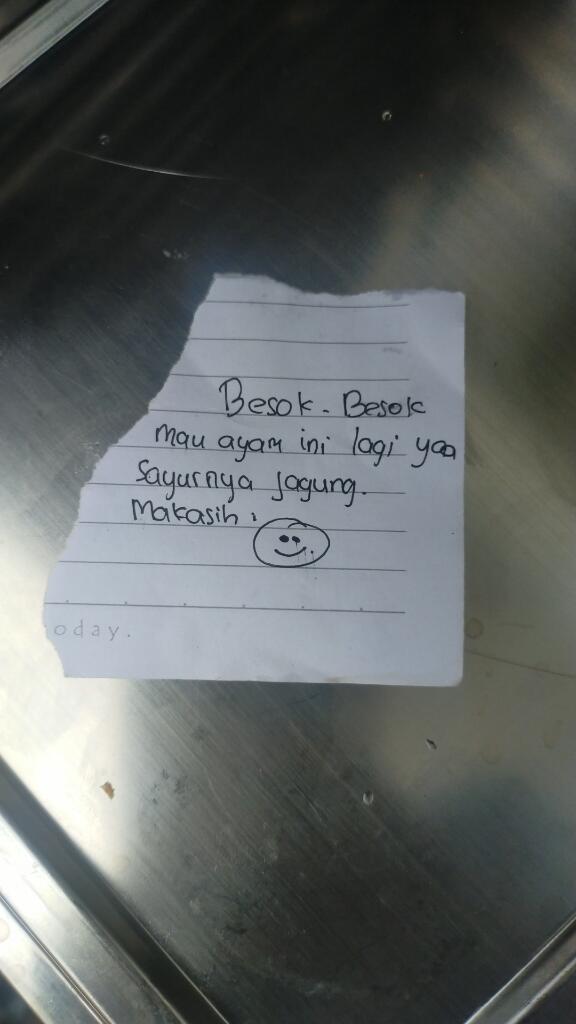 Besok - Besok
mau ayam ini lagi yaa
Sayurnya jagung.
Makasih :
oday.